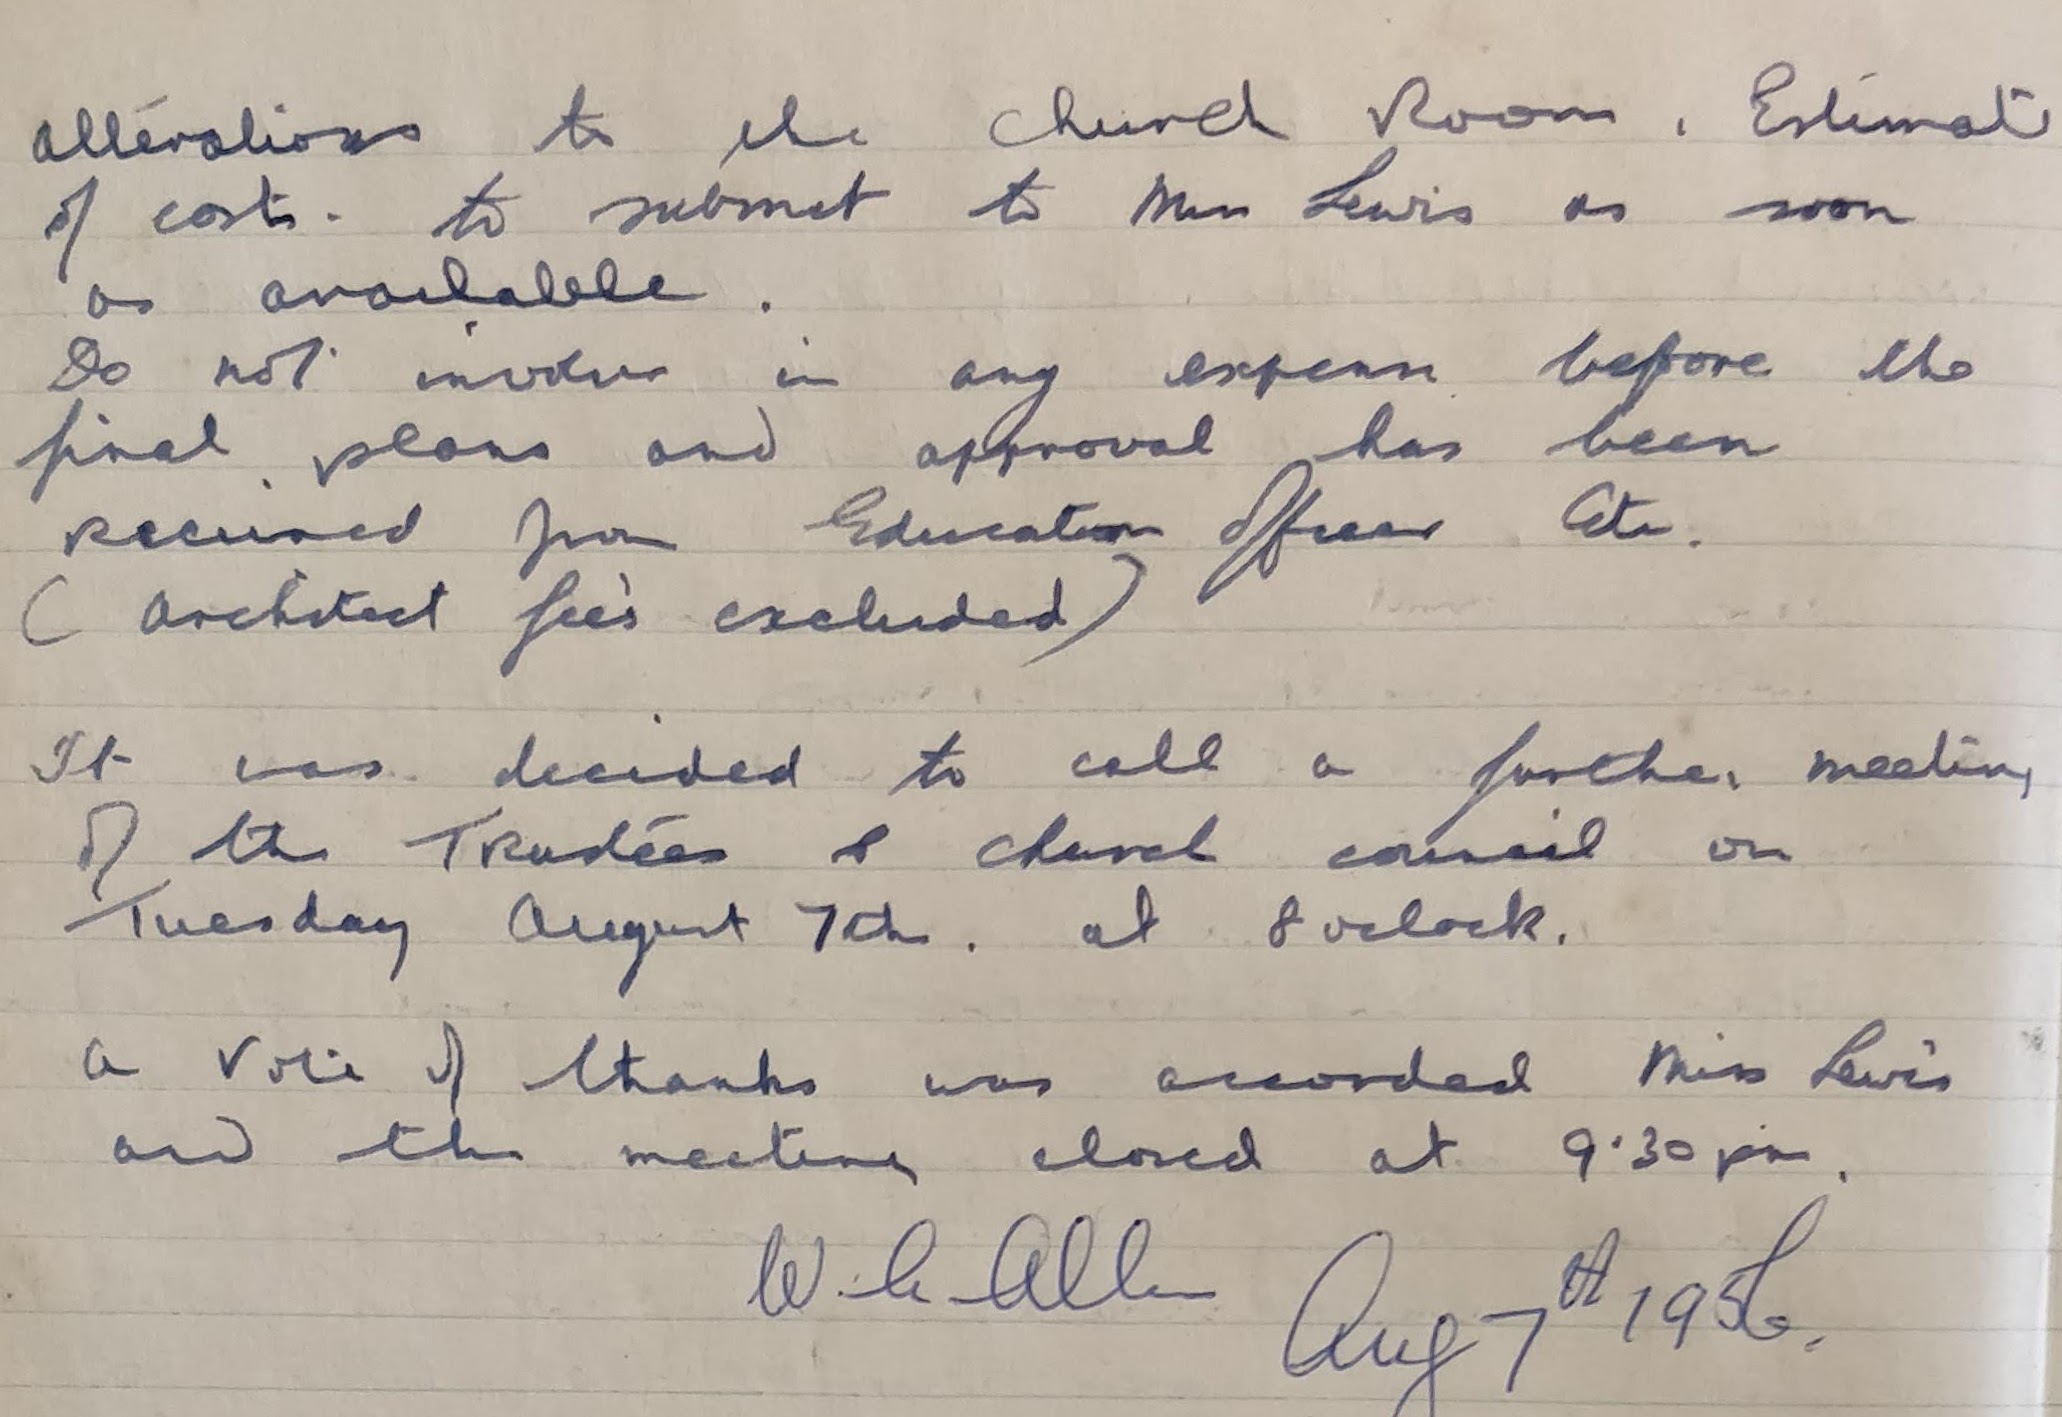 alterations to the Church Room. Estimate
of costs. to submit to Miss Lewis as soon
as available.
Do not involve in any expense before the
final plans and approval has been
received from Education Officer Etc.
(Architect fee's excluded)
It was decided to call a further meeting
of the Trustees & Church council on
Tuesday August 7th. at 8 oclock.
A Vote of thanks was accorded Miss Lewis
and the meeting closed at 9.30 pm.
W. Allen Aug 7th 1956.